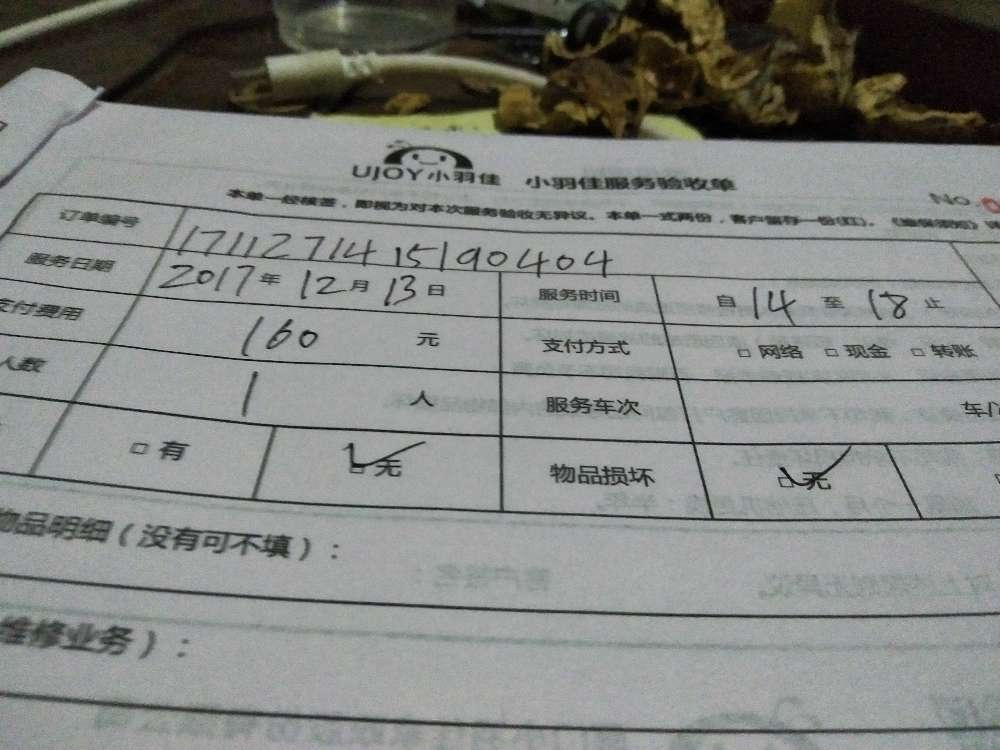 UJOY小羽佳 小羽佳服务验收单
No.
本单一经核签，即视为对本次服务验收无异议。本单一式两份，客户留存一份(红)。《维保须知》
订单编号 1711271415190404
服务日期 2017年12月13日 服务时间 自14至18止
支付费用 160元 支付方式 □网络 □现金 □转账
人数 1人 服务车次 车/
□有 ☑无 物品损坏 ☑无
物品明细（没有可不填）：
维修业务）：